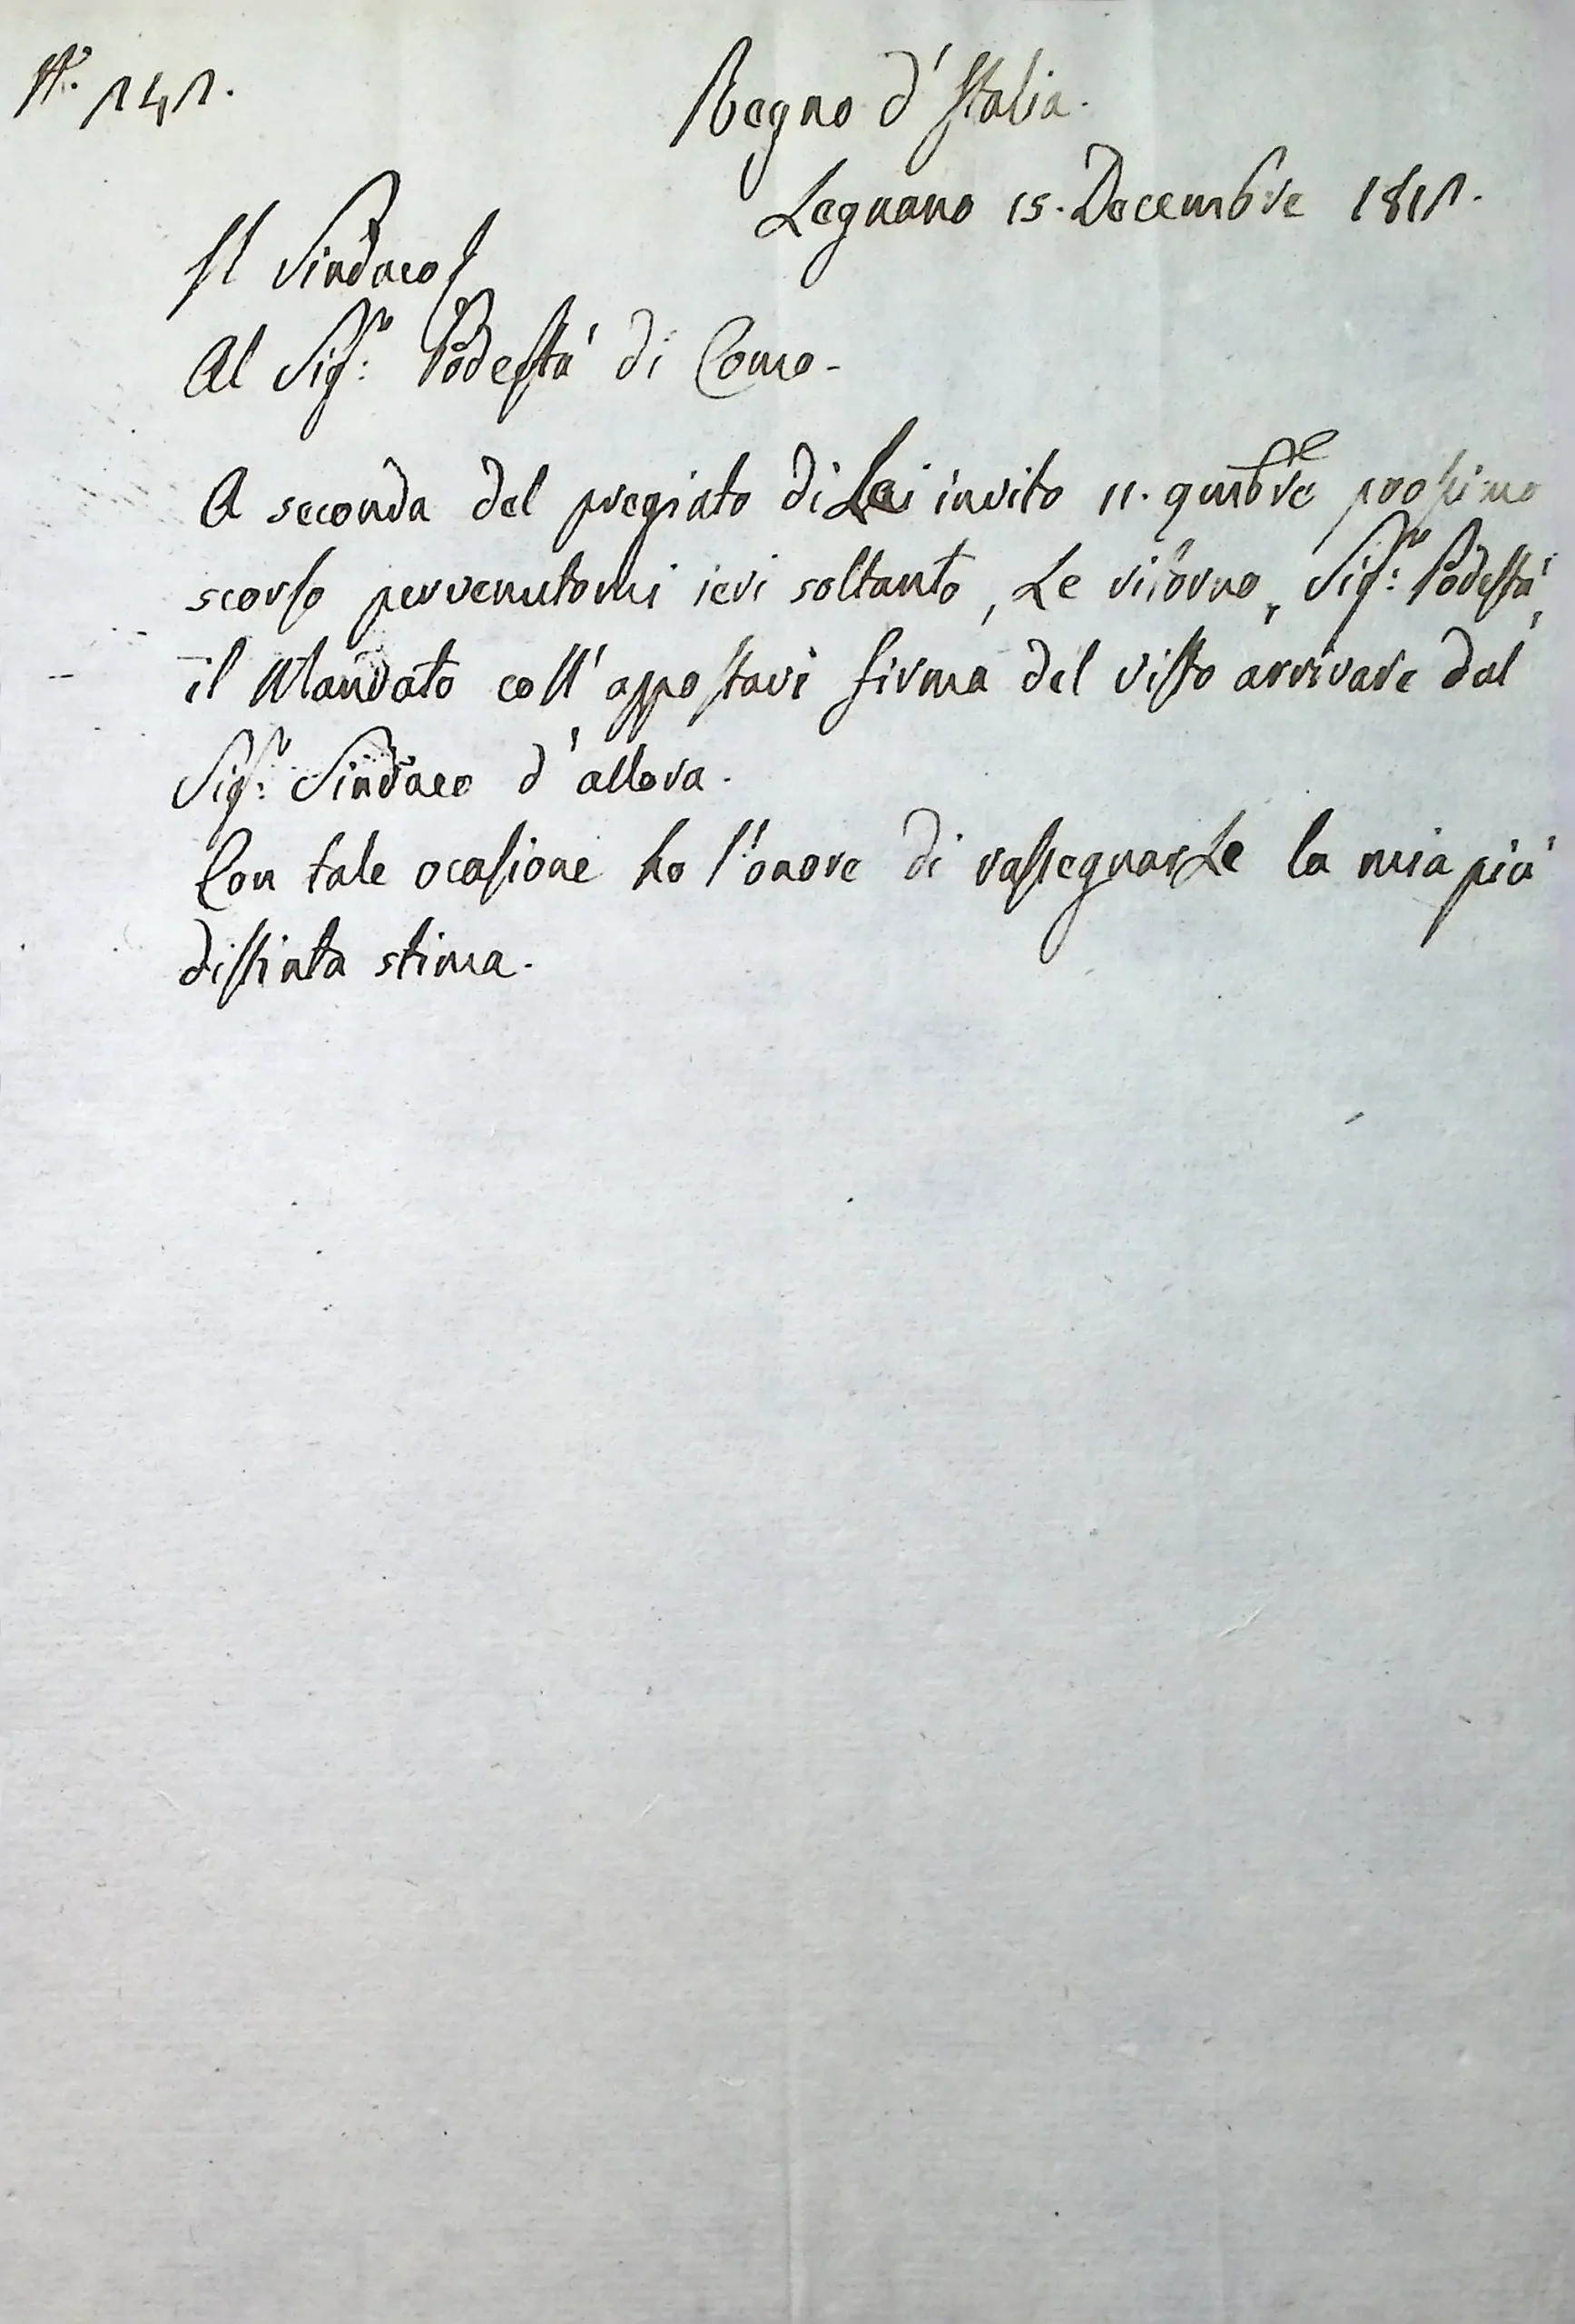 N.° 141.
Regno d'Italia.
Legnano 15. Decembre 1811.
Il Sindaco
Al Sig.r Podestà di Como.
A seconda del pregiato di Lei invito 11. 9mbre prossimo
scorso pervenutomi ieri soltanto, Le ritorno, Sig.r Podestà,
il Mandato coll'appostavi firma del visto arrivare dal
Sig.r Sindaco d'allora.
Con tale ocasione ho l'onore di rassegnarLe la mia più
distinta stima.